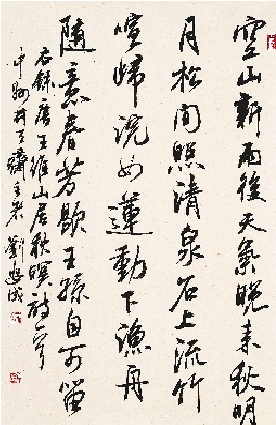 空山新雨後天氣晚來秋明
月松間照清泉石上流竹
喧歸浣女蓮動下漁舟
隨意春芳歇王孫自可留
右錄唐王維山居秋暝詩一首
中州